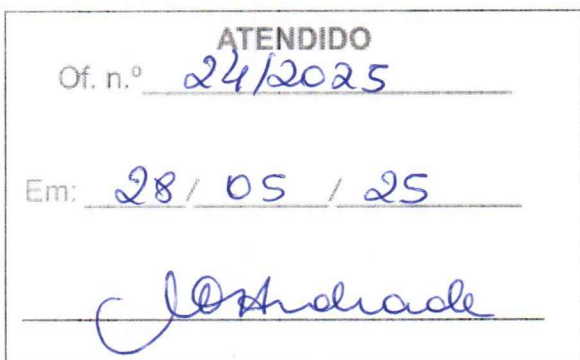 ATENDIDO
Of. n.º 24/2025
Em: 28 / 05 / 25
Andrade